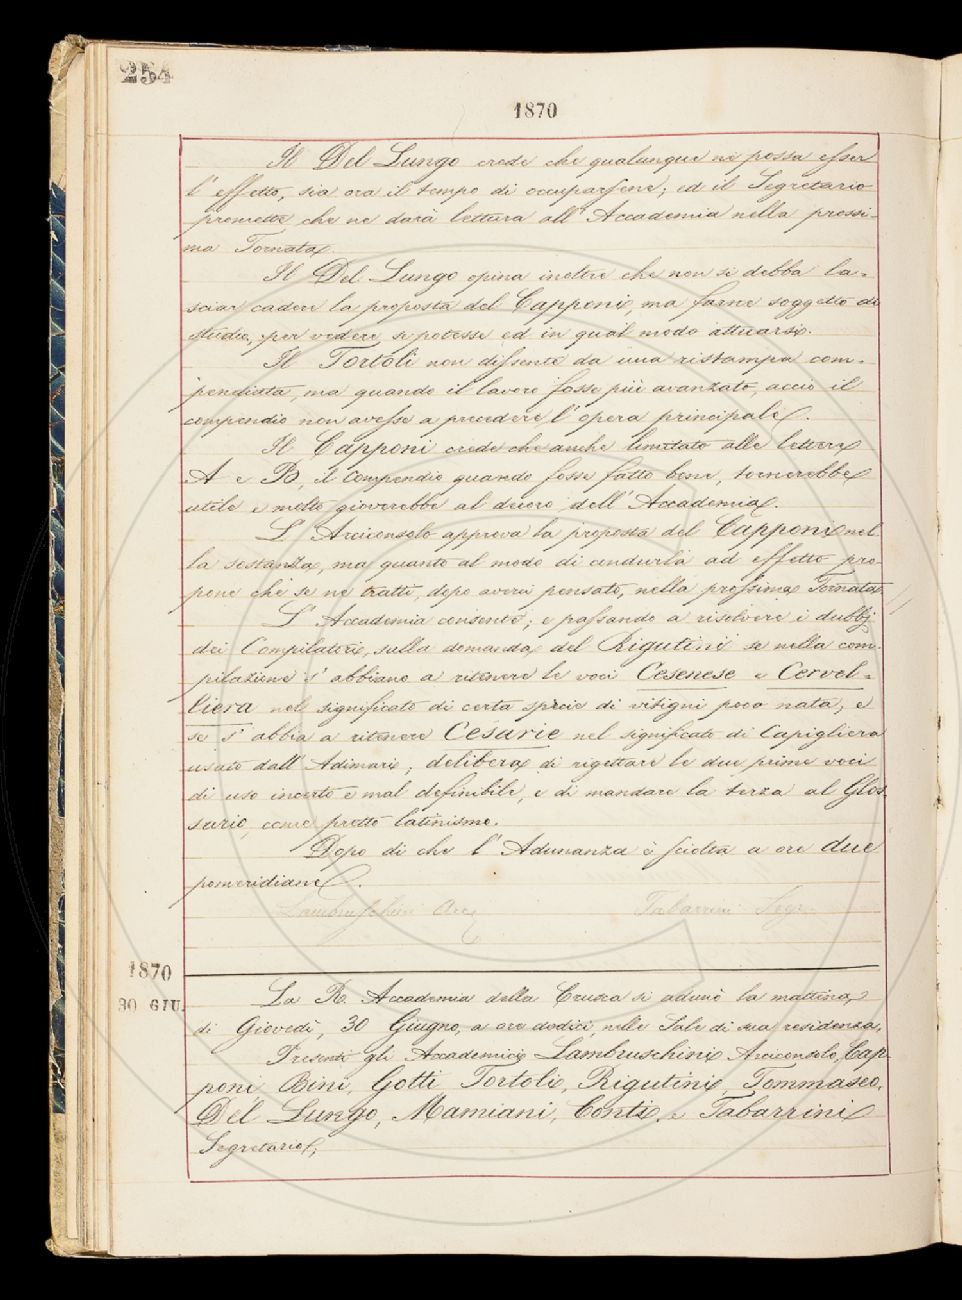 254
1870
Il Del Lungo crede che qualunque ne possa esser
l'effetto, sia ora il tempo di occuparsene; ed il Segretario
promette che ne darà lettura all'Accademia nella prossi-
ma Tornata.
Il Del Lungo opina inoltre che non si debba la-
sciar cadere la proposta del Capponi, ma farne soggetto di
studio, per vedere se potesse ed in qual modo attuarsi.
Il Tortoli non dissente da una ristampa com-
pendiata, ma quando il lavoro fosse più avanzato, acciò il
compendio non avesse a precedere l'opera principale.
Il Capponi crede che anche limitato alle lettere
A e B, il compendio quando fosse fatto bene, tornerebbe
utile e molto gioverebbe al decoro dell'Accademia.
L'Arciconsolo approva la proposta del Capponi nel
la sostanza, ma quanto al modo di condurla ad effetto pro
pone che se ne tratti, dopo averci pensato, nella prossima Tornata.
L'Accademia consente; e passando a risolvere i dubbj
dei Compilatori, sulla domanda del Rigutini se nella com-
pilazione s'abbiano a ritenere le voci Cesenese e Cervel-
liera nel significato di certa specie di vitigni poco nota, e
se s'abbia a ritenere Cesarie nel significato di Capigliera
usato dall'Adimari; delibera di rigettare le due prime voci
di uso incerto e mal definibile, e di mandare la terza al Glos
sario, come pretto latinismo.
Dopo di che l'Adunanza è sciolta a ore due
pomeridiane.
Lambruschini Arc. Tabarrini Segr.
1870
30 GIU.
La R. Accademia della Crusca si adunò la mattina
di Giovedì, 30 Giugno, a ore dodici, nelle Sale di sua residenza.
Presenti gli Accademici Lambruschini Arciconsolo, Cap-
poni, Bini, Gotti Tortoli, Rigutini, Tommaseo,
Del Lungo, Mamiani, Conti, e Tabarrini
Segretario;